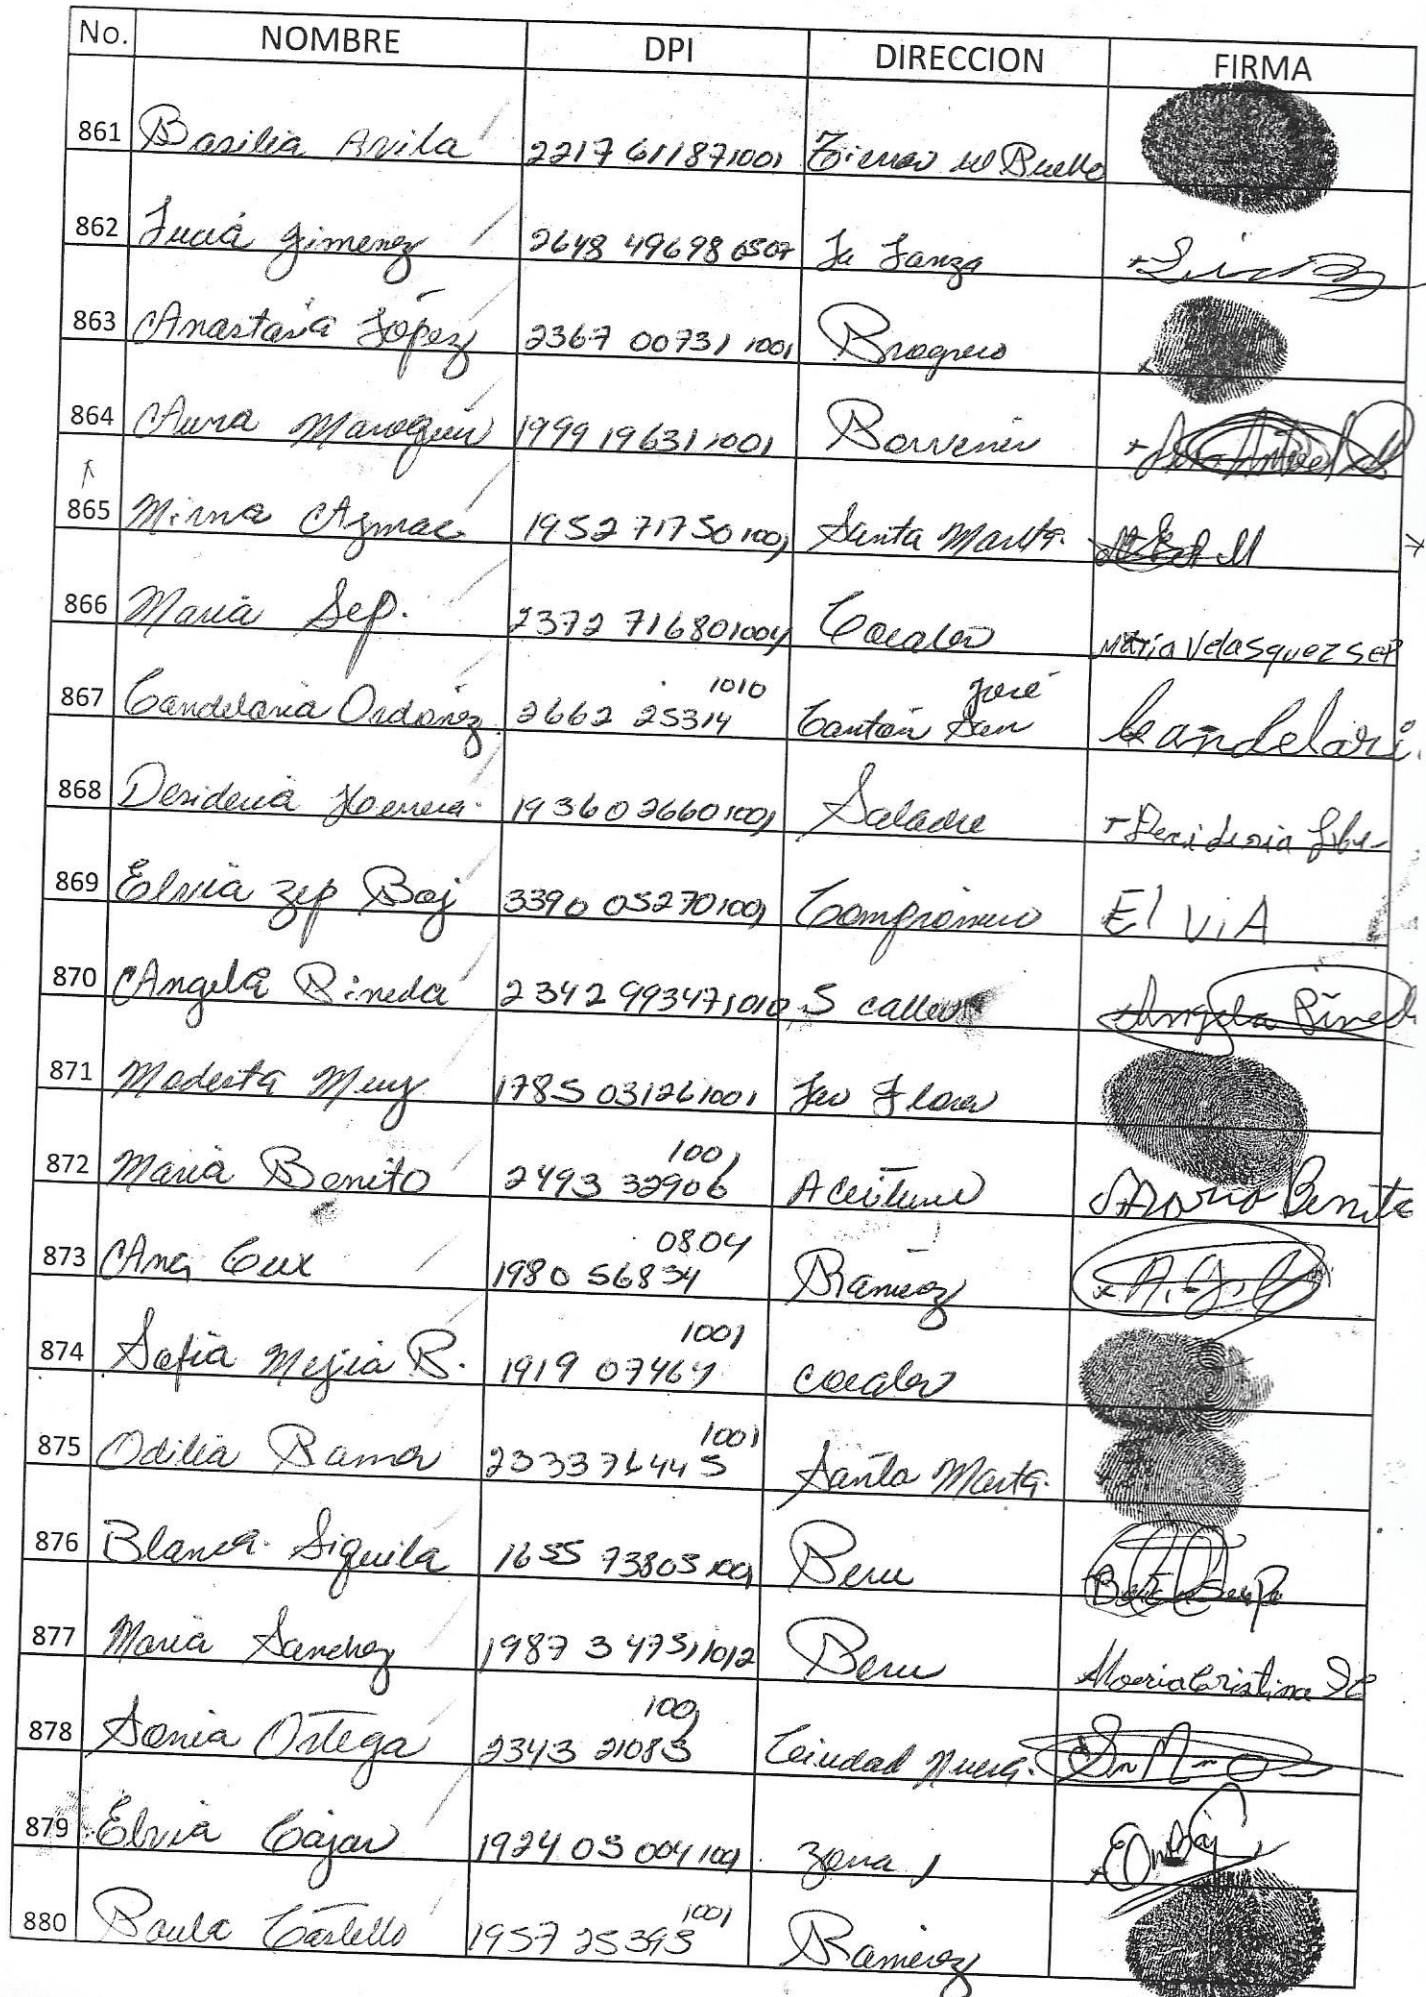 No. NOMBRE DPI DIRECCION FIRMA
861 Basilia Avila 2217 611871001 Tierras del Pueblo
862 Lucía Jimenez 2648 496980507 La Lanza
863 Anastasia López 2367 00731 1001 Progreso
864 Aura Marroquin 1999 19631 1001 Porvenir
865 Mirna Azmac 1952 71750 1001 Santa Marta.
866 Maria Sep. 2372 716801004 Cocales Maria Velasquez Sep
867 Candelaria Ordoñez 2662 25314 1010 Cantón San José Candelari.
868 Desideria Herrera 1936 02660 1001
869 Elvia Zep Boj 3390 05270 1001 Compromiso El ViA
870 Angela Pineda 2342 993471010 5 calles Angela Pined
871 Modesta Muy 1785 031261001 Las Flores
872 Maria Benito 2493 32906 1001 Aceituno Maria Benito
873 Ana Cux 1980 56834 0804 Ramirez
874 Sofia Mejia R. 1919 07467 1001 cocales
875 Odilia Ramos 2333 76445 1001 Santa Marta.
876 Blanca Siquila 1655 73805 1001 Peru
877 Maria Sanchez 1987 3 4751 1012 Peru Maria Cristina
878 Sonia Ortega 2343 21083 1001 Ciudad Nueva.
879 Elvia Cajas 1924 05 004 1001 zona 1
880 Paula Castello 1957 25395 1001 Ramirez